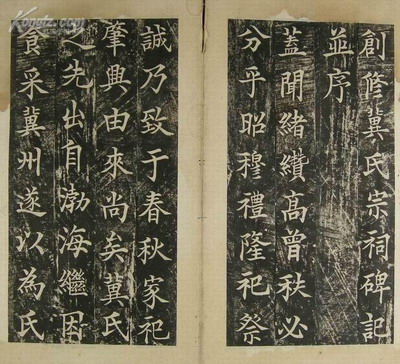 創脩冀氏宗祠碑記
並序
蓋聞緒纘高曾秩必
分乎昭穆禮隆祀祭
誠乃致于春秋家祀
肇興由來尚矣冀氏
之先出自渤海繼因
食采冀州遂以為氏